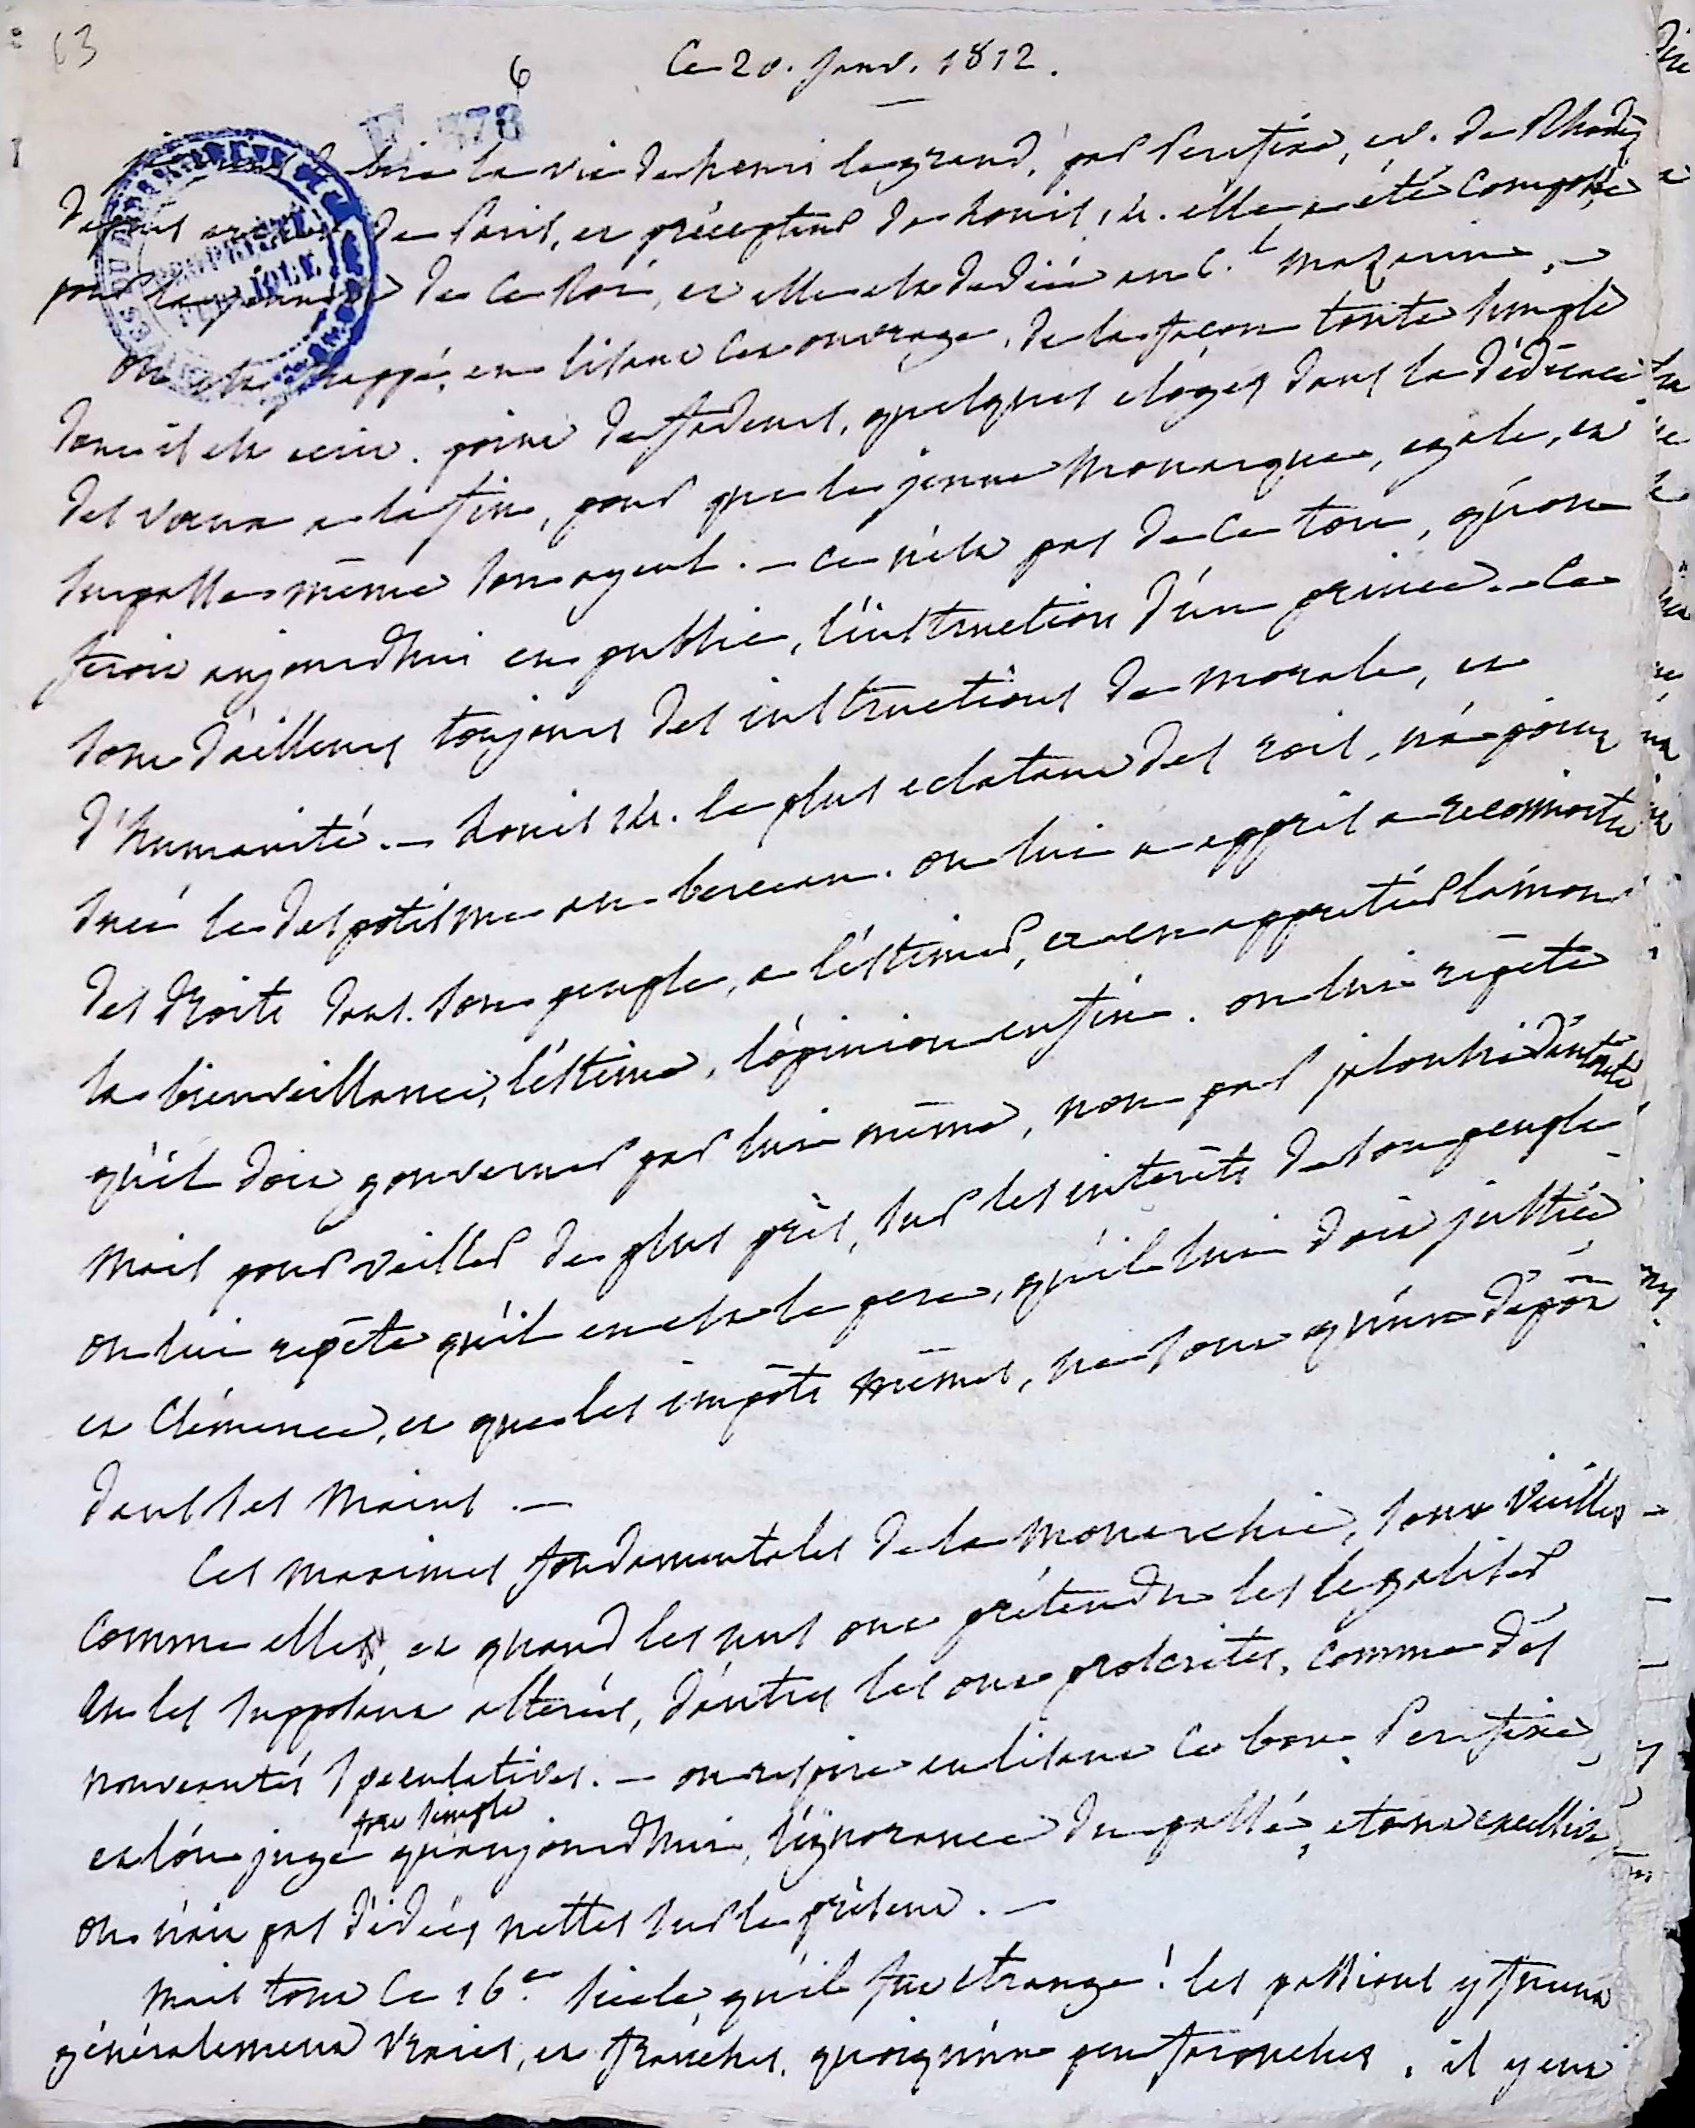 63
6
Ce 20. Janv. 1812.
E 473
lire la vie de henri le grand, par Perefixe, ev. de Rhodez
depuis de Paris, et précepteur de Louis 14. elle a été composée
pour de ce Roi, et elle est dediée au C.al Mazarin. –
on est frappé, en lisant cet ouvrage, de la façon toute simple
dont il est ecrit. point de fadeurs, quelques eloges dans la dédicace
des vœux a la fin, pour que le jeune monarque, egale, et
surpasse même son ayeul. – ce n'est pas de ce ton, qu'on
feroit aujourdhui en public, l'instruction d'un prince. ce
sont d'ailleurs toujours des instructions de morale, et
d'humanité. – Louis 14. le plus eclatant des rois, n'a point
sucé le despotisme au berceau. on lui a appris a reconnoitre
des droits dans son peuple, a l'estimer, et en apprécier l'amour
la bienveillance, l'estime, l'opinion enfin. on lui répète
qu'il doit gouverner par lui même, non par jalousie d'autorité
mais pour veiller de plus près, sur les interêts de son peuple
on lui repète qu'il en est le pere, qu'il lui doit justice
et clémence, et que les impôts mêmes, ne sont qu'un dépôt
dans ses mains. –
Ces maximes fondamentales de la monarchie, sont vieilles
comme elle, et quand les uns ont prétendu les legaliser
en les supposant alterées, d'autres les ont proscrites, comme des
nouveautés speculatives. – on respire en lisant ce bon Perefixe,
et l'on juge fort simple qu'aujourdhui, l'ignorance du passé, etant excessive
on n'ait pas d'idées nettes sur le présent. –
mais tout ce 16.e siecle, qu'il fut etrange! les passions y furent
généralement vraies, et franches, quoiqu'un peu farouches, il y eut